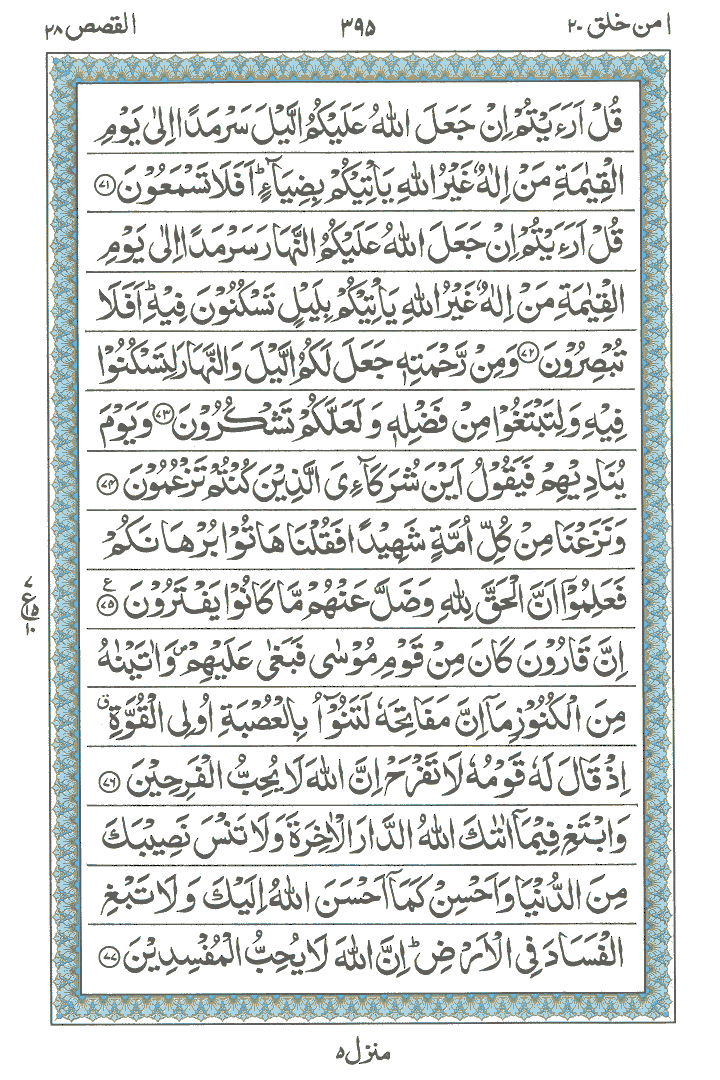 امن خلق ۲۰ ۳۹۵ القصص ۲۸
قُلْ اَرَءَيْتُمْ اِنْ جَعَلَ اللّٰهُ عَلَيْكُمُ الَّيْلَ سَرْمَدًا اِلٰى يَوْمِ
الْقِيٰمَةِ مَنْ اِلٰهٌ غَيْرُ اللّٰهِ يَاْتِيْكُمْ بِضِيَآءٍ ؕ اَفَلَا تَسْمَعُوْنَ ﴿۷۱﴾
قُلْ اَرَءَيْتُمْ اِنْ جَعَلَ اللّٰهُ عَلَيْكُمُ النَّهَارَ سَرْمَدًا اِلٰى يَوْمِ
الْقِيٰمَةِ مَنْ اِلٰهٌ غَيْرُ اللّٰهِ يَاْتِيْكُمْ بِلَيْلٍ تَسْكُنُوْنَ فِيْهِ ؕ اَفَلَا
تُبْصِرُوْنَ ﴿۷۲﴾ وَمِنْ رَّحْمَتِهٖ جَعَلَ لَكُمُ الَّيْلَ وَالنَّهَارَ لِتَسْكُنُوْا
فِيْهِ وَلِتَبْتَغُوْا مِنْ فَضْلِهٖ وَلَعَلَّكُمْ تَشْكُرُوْنَ ﴿۷۳﴾ وَيَوْمَ
يُنَادِيْهِمْ فَيَقُوْلُ اَيْنَ شُرَكَآءِىَ الَّذِيْنَ كُنْتُمْ تَزْعُمُوْنَ ﴿۷۴﴾
وَنَزَعْنَا مِنْ كُلِّ اُمَّةٍ شَهِيْدًا فَقُلْنَا هَاتُوْا بُرْهَانَكُمْ
فَعَلِمُوْٓا اَنَّ الْحَقَّ لِلّٰهِ وَضَلَّ عَنْهُمْ مَّا كَانُوْا يَفْتَرُوْنَ ﴿۷۵﴾ ع
۷ ع ۱۵ ۱۰
اِنَّ قَارُوْنَ كَانَ مِنْ قَوْمِ مُوْسٰى فَبَغٰى عَلَيْهِمْ ۪ وَاٰتَيْنٰهُ
مِنَ الْكُنُوْزِ مَآ اِنَّ مَفَاتِحَهٗ لَتَنُوْٓاُ بِالْعُصْبَةِ اُولِى الْقُوَّةِ ۗ
اِذْ قَالَ لَهٗ قَوْمُهٗ لَا تَفْرَحْ اِنَّ اللّٰهَ لَا يُحِبُّ الْفَرِحِيْنَ ﴿۷۶﴾
وَابْتَغِ فِيْمَآ اٰتٰىكَ اللّٰهُ الدَّارَ الْاٰخِرَةَ وَلَا تَنْسَ نَصِيْبَكَ
مِنَ الدُّنْيَا وَاَحْسِنْ كَمَآ اَحْسَنَ اللّٰهُ اِلَيْكَ وَلَا تَبْغِ
الْفَسَادَ فِى الْاَرْضِ ؕ اِنَّ اللّٰهَ لَا يُحِبُّ الْمُفْسِدِيْنَ ﴿۷۷﴾
منزل ۵